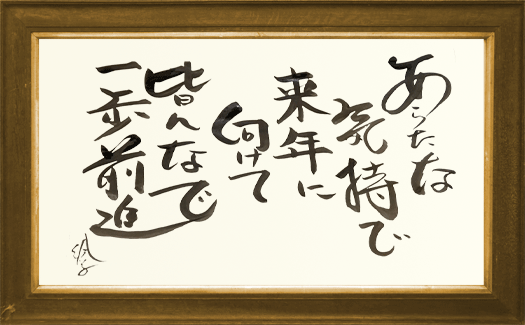 あらたな
気持で
来年に
向けて
皆んなで
一歩前進